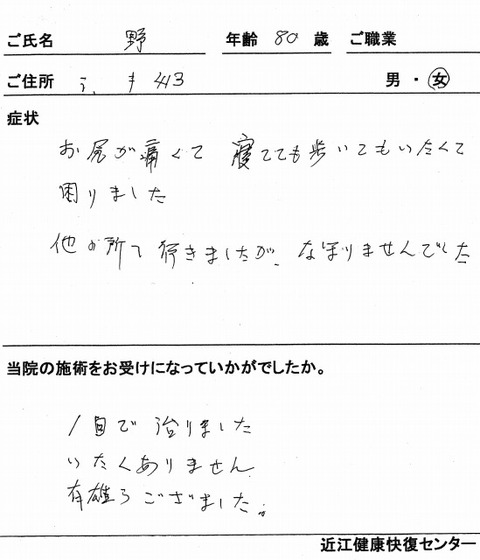 ご氏名 野 年齢 80 歳 ご職業
ご住所 413 男・女
症状
お尻が痛くて 寝てても歩いてもいたくて
困りました
他の所へ行きましたが、なおりませんでした
当院の施術をお受けになっていかがでしたか。
1回で治りました
いたくありません
有難うございました。
近江健康快復センター